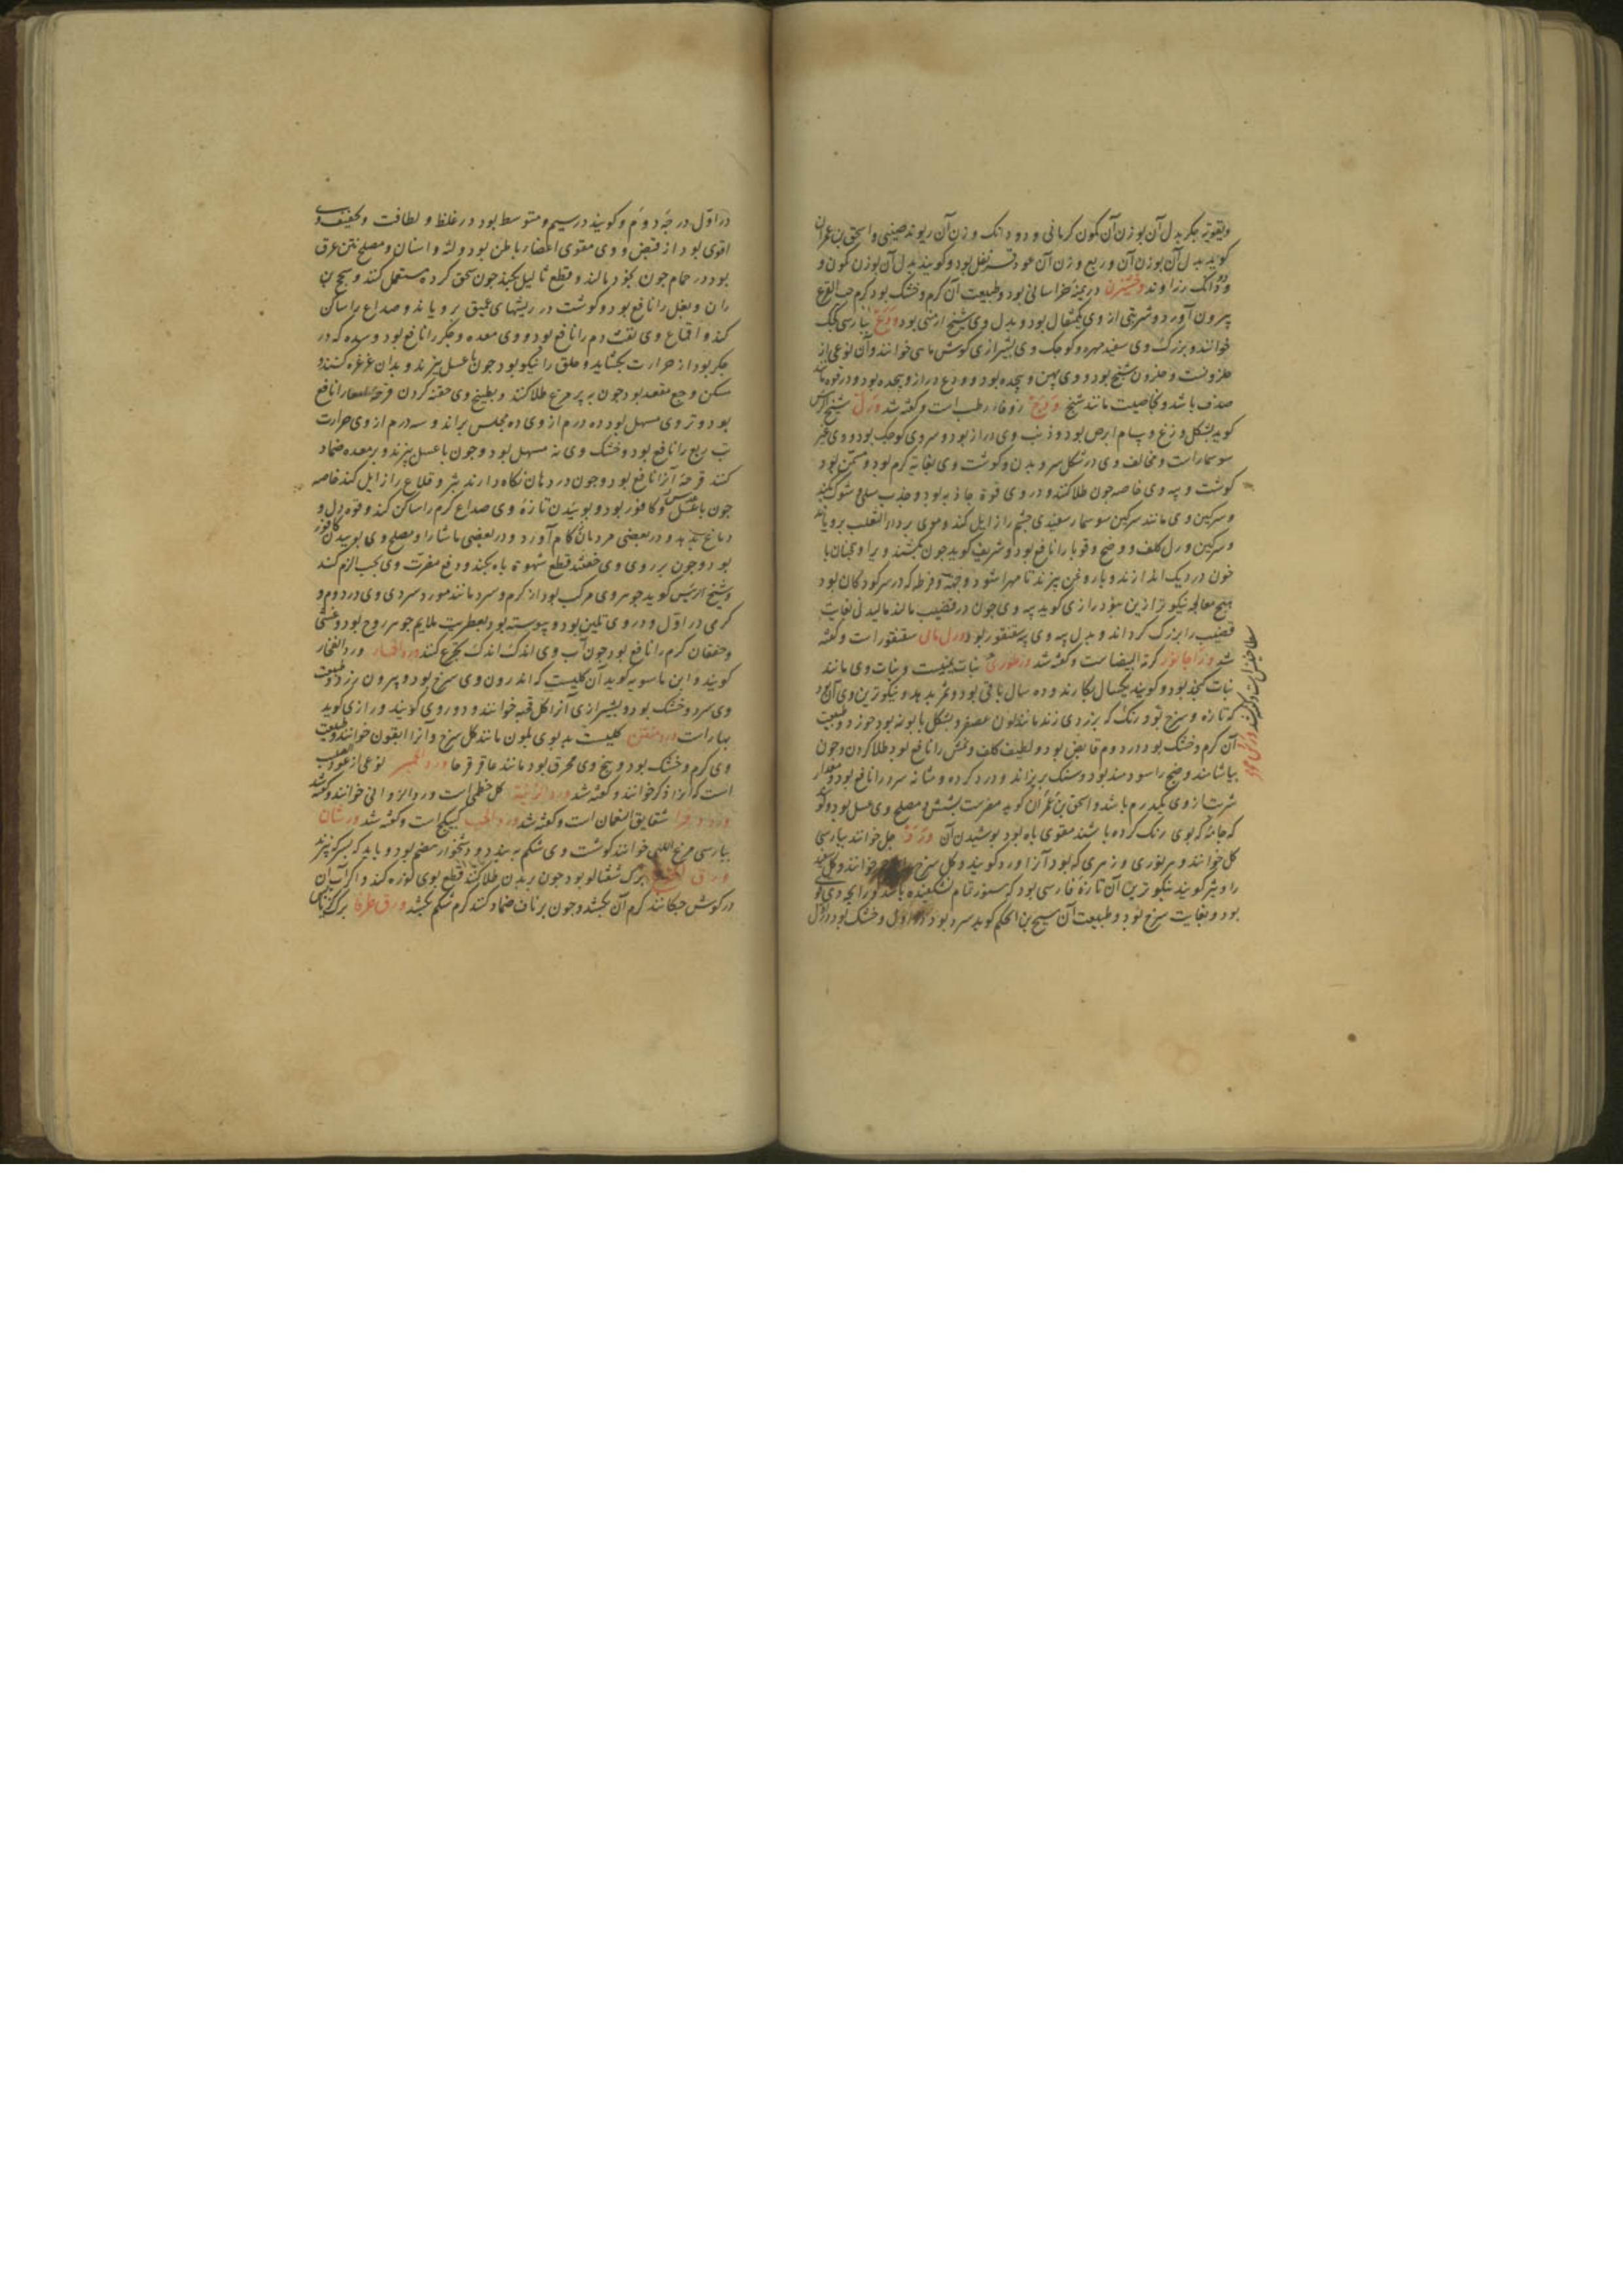 و تقویة جگر بدل آن بوزن آن کمون کرمانی و دو دانک وزن آن ریوند صینی و اسحق بن عمران
کوید بدل آن بوزن آن و ربع وزن آن عود قرنفل بود و کویند بدل آن بوزن کمون و
دو دانک رزاوند وخشیزن درمنه خراسانی بود و طبیعت آن کرم و خشک بود کرم حب القرع
بیرون آورد و شربتی از وی یکمثقال بود و بدل وی شیح ارمنی بود ودع بپارسی کجک
خوانند و بزرک وی سفید مهره و کوجک وی بشیرازی کوش ماسی خوانند و آن نوعی از
حلزونست و حلزون شنج بود و وی پهن و پیجیده بود و ودع دراز و پیجیده بود و در قوه مانند
صدف باشد و بخاصیت مانند شنج وذح زوفاء رطب است و کفته شد ورل شیخ الرئیس
کوید بشکل وزغ و سام ابرص بود و ذنب وی دراز بود و سر وی کوجک بود و وی غیر
سوسمار است و مخالف وی در شکل سر و بدن و کوشت وی بغایه کرم بود و مسمن بود
کوشت و پیه وی خاصه جون طلا کنند و در وی قوة جاذبه بود و جذب سلی و شوک بکند
و سرکین وی مانند سرکین سوسمار سفیدی جشم را زایل کند و موی بر داء الثعلب برویاند
و سرکین ورل کلف و وضح و قوبا را نافع بود و شریف کوید جون بکشند ویرا و همجنان با
خون در دیک اندازند و با روغن بپزند تا مهرا شود و جهة قرطه که در سر کودکان بود
هیج معالجه نیکوتر ازین نبود رازی کوید پیه وی جون در قضیب مالند مالیدنی بغایت
قضیب را بزرک کرداند و بدل پیه وی پیه سقنقور بود ورل مائی سقنقور است و کفته
شد ورا جالوز کرمة البیضا ست و کفته شد ورطوری نبات یمنیست و نبات وی مانند
نبات کنجد بود و کویند یکسال بکارند و ده سال باقی بود و ثمر بدهد و نیکوترین وی آن بود
که تازه و سرخ بود رنک که بزردی زند مانند لون عصفر و بشکل بابونه بود خوزد و طبیعت
آن کرم و خشک بود در دوم قابض بود و لطیف کلف و نمش را نافع بود طلا کردن و جون
بیاشامند وضح را سودمند بود و سنک بریزاند و درد کرده و مثانه سرد را نافع بود و مقدار
شربت از وی یکدرم باشد و اسحق بن عمران کوید مضرست بشش و مصلح وی عسل بود و کویند
که جامه که بوی رنک کرده باشند مقوی باه بود بوشیدن آن ورد جل خوانند بپارسی
کل خوانند و هر نوری و زهری که بود آنرا ورد کویند و کل سرخ خوانند و کل سفید
را وثیر کویند نیکوترین آن تازه فارسی بود که هنوز تمام نشکفته باشد و رایحه وی قوی
بود و بغایت سرخ بود و طبیعت آن مسیح بن الحکم کوید سرد بود در اول و خشک بود در اول
در اول درجه دوم و کویند در سیم و متوسط بود در غلظ و لطافت و تجفیف وی
اقوی بود از قبض و وی مقوی اعضاء باطن بود و لثه و اسنان و مصلح نتن عرق
بود در حمام جون بخود مالند و قطع ثالیل بکند جون سحق کرده مستعمل کنند و سحج بن
ران و بغل را نافع بود و کوشت در ریشهای عمیق برویاند و صداع را ساکن
کند و اقماع وی نفث دم را نافع بود و وی معده و جکر را نافع بود و سده که در
جکر بود از حرارت بکشاید و حلق را نیکو بود جون با عسل بپزند و بدان غرغره کنند و
سکن وجع مقعد بود جون به پر مرغ طلا کنند و بطبیخ وی حقنه کردن قرحه امعا را نافع
بود و تر وی مسهل بود ده درم از وی ده مجلس براند و سه درم از وی حرارت
تب ربع را نافع بود و خشک وی نه مسهل بود و جون با عسل بپزند و بر معده ضماد
کنند قرحه آنرا نافع بود و جون در دهان نکاه دارند بثر و قلاع را زایل کند خاصه
جون با عدس و کافور بود و بوییدن تازه وی صداع کرم را ساکن کند و قوة دل و
دماغ بدهد و در بعضی مردمان زکام آورد و در بعضی ماشرا و مصلح وی بوییدن کافور
بود و جون بر روی وی خفتند قطع شهوة باه بکند و دفع مضرت وی بحب الزلم کنند
و شیخ الرئیس کوید جوهر وی مرکب بود از کرم و سرد مانند مورد سردی وی در دوم و
کرمی در اول و در وی تلیین بود و پیوسته بود بعطریت ملایم جوهر روح بود و غشی
و خفقان کرم را نافع بود جون آب وی اندک اندک تجرع کنند ورد الحمار ورد الفجار
کویند و ابن ماسویه کوید آن کلیست که اندرون وی سرخ بود و بیرون زرد و طبیعت
وی سرد و خشک بود و بشیرازی آنرا کل قحبه خوانند و دوروی کویند و رازی کوید
بهار است ورد منتن کلیست بد بوی بلون مانند کل سرخ و آنرا ابقون خوانند و طبیعت
وی کرم و خشک بود و بیخ وی محرق بود مانند عاقرقرحا ورد الحمیر نوعی از عود صلیب
است که آنرا ذکر خوانند و کفته شد ورد الزینه کل خطمی است و ورد الزوانی خوانند و کفته شد
ورد شقایق النعمان است و کفته شد ورد الحب کبیکج است و کفته شد ورشان
بپارسی مرغ الهی خوانند کوشت وی شکم به بندد و دشخوار هضم بود و باید که بسرکه پزند
ورق الخوخ برک شفتالو بود جون بر بدن طلا کنند قطع بوی نوره کند و اکر آب آن
در کوش جکانند کرم آن بکشد و جون بر ناف ضماد کنند کرم شکم بکشد ورق طرفا برک